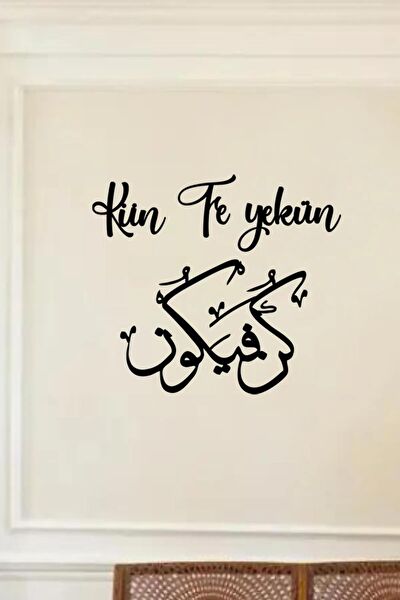 Kün Fe yekün
كن فيكون